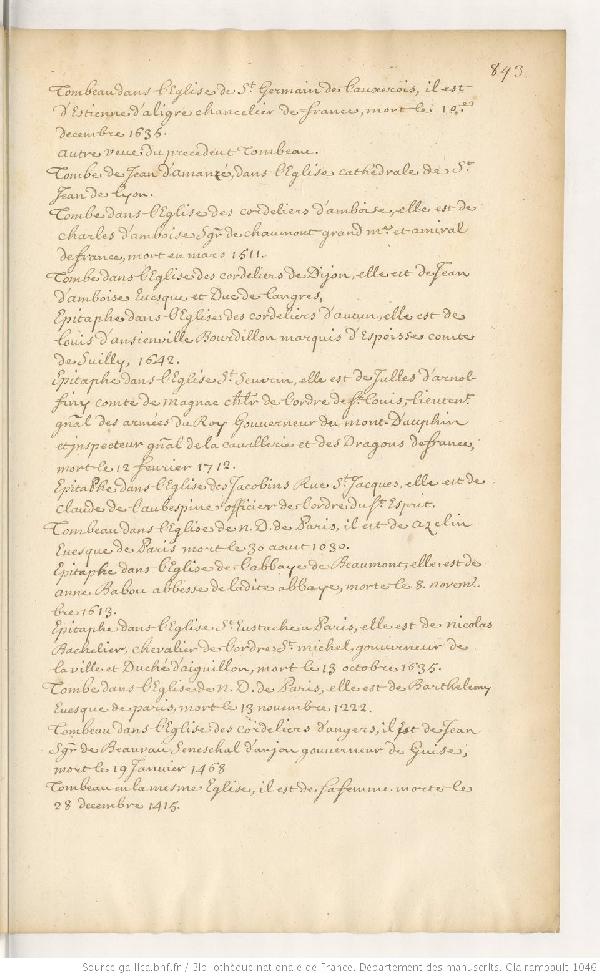 893
Tombeau dans l'Eglise de St. Germain de l'auxerois, il est
d'Estienne d'aligre chancelier de france, mort le
decembre 1635.
autre veue du precedent Tombeau.
Tombe de Jean d'amanzé, dans l'Eglise cathedrale de St.
Jean de Lyon.
Tombe dans l'Eglise des cordeliers d'amboise, elle est de
charles d'amboise Sgr. de chaumont grand mre. et amiral
de france, mort en mars 1511.
Tombe dans l'Eglise des cordeliers de Dijon, elle est de Jean
d'amboise Evesque et Duc de langres,
Epitaphe dans l'Eglise des cordeliers d'avcun, elle est de
louis d'ansienville Bourdillon marquis d'Espoisse comte
de Suilly, 1642.
Epitaphe dans l'Eglise St. Severin, elle est de Julles d'arnol-
finy comte de magnac chlr. de l'ordre de St. louis, lieutent.
gnal des armées du Roy Gouverneur du mont-Dauphin
et inspecteur gnal de la cavallerie et des Dragons de france,
mort le 12 fevrier 1712.
Epitaphe dans l'Eglise des Jacobins Rue St. Jacques, elle est de
claude de l'aubespine officier de l'ordre du St. Esprit.
Tombeau dans l'Eglise de N. D. de Paris, il est de azelin
Evesque de Paris mort le 30 aout 1030.
Epitaphe dans l'Eglise de l'abbaye de Beaumont, elle est de
anne Babou abbesse de ladite abbaye, morte le 8. novem-
bre 1613.
Epitaphe dans l'Eglise St. Eustache a Paris, elle est de nicolas
Bachelier, chevalier de l'ordre St. michel, gouverneur de
la ville et Duché d'aiguillon, mort le 13 octobre 1635.
Tombe dans l'Eglise de N. D. de Paris, elle est de Barthelemy
Evesque de paris, mort le 13 novembre 1222.
Tombeau dans l'Eglise des cordeliers d'angers, il est de Jean
Sgr. de Beauvau, Seneschal d'anjou gouverneur de Guise,
mort le 19 Janvier 1468
Tombeau en la mesme Eglise, il est de sa femme morte le
28 decembre 1415.
Source gallica.bnf.fr / Bibliothèque nationale de France. Département des manuscrits. Clairambault 1046